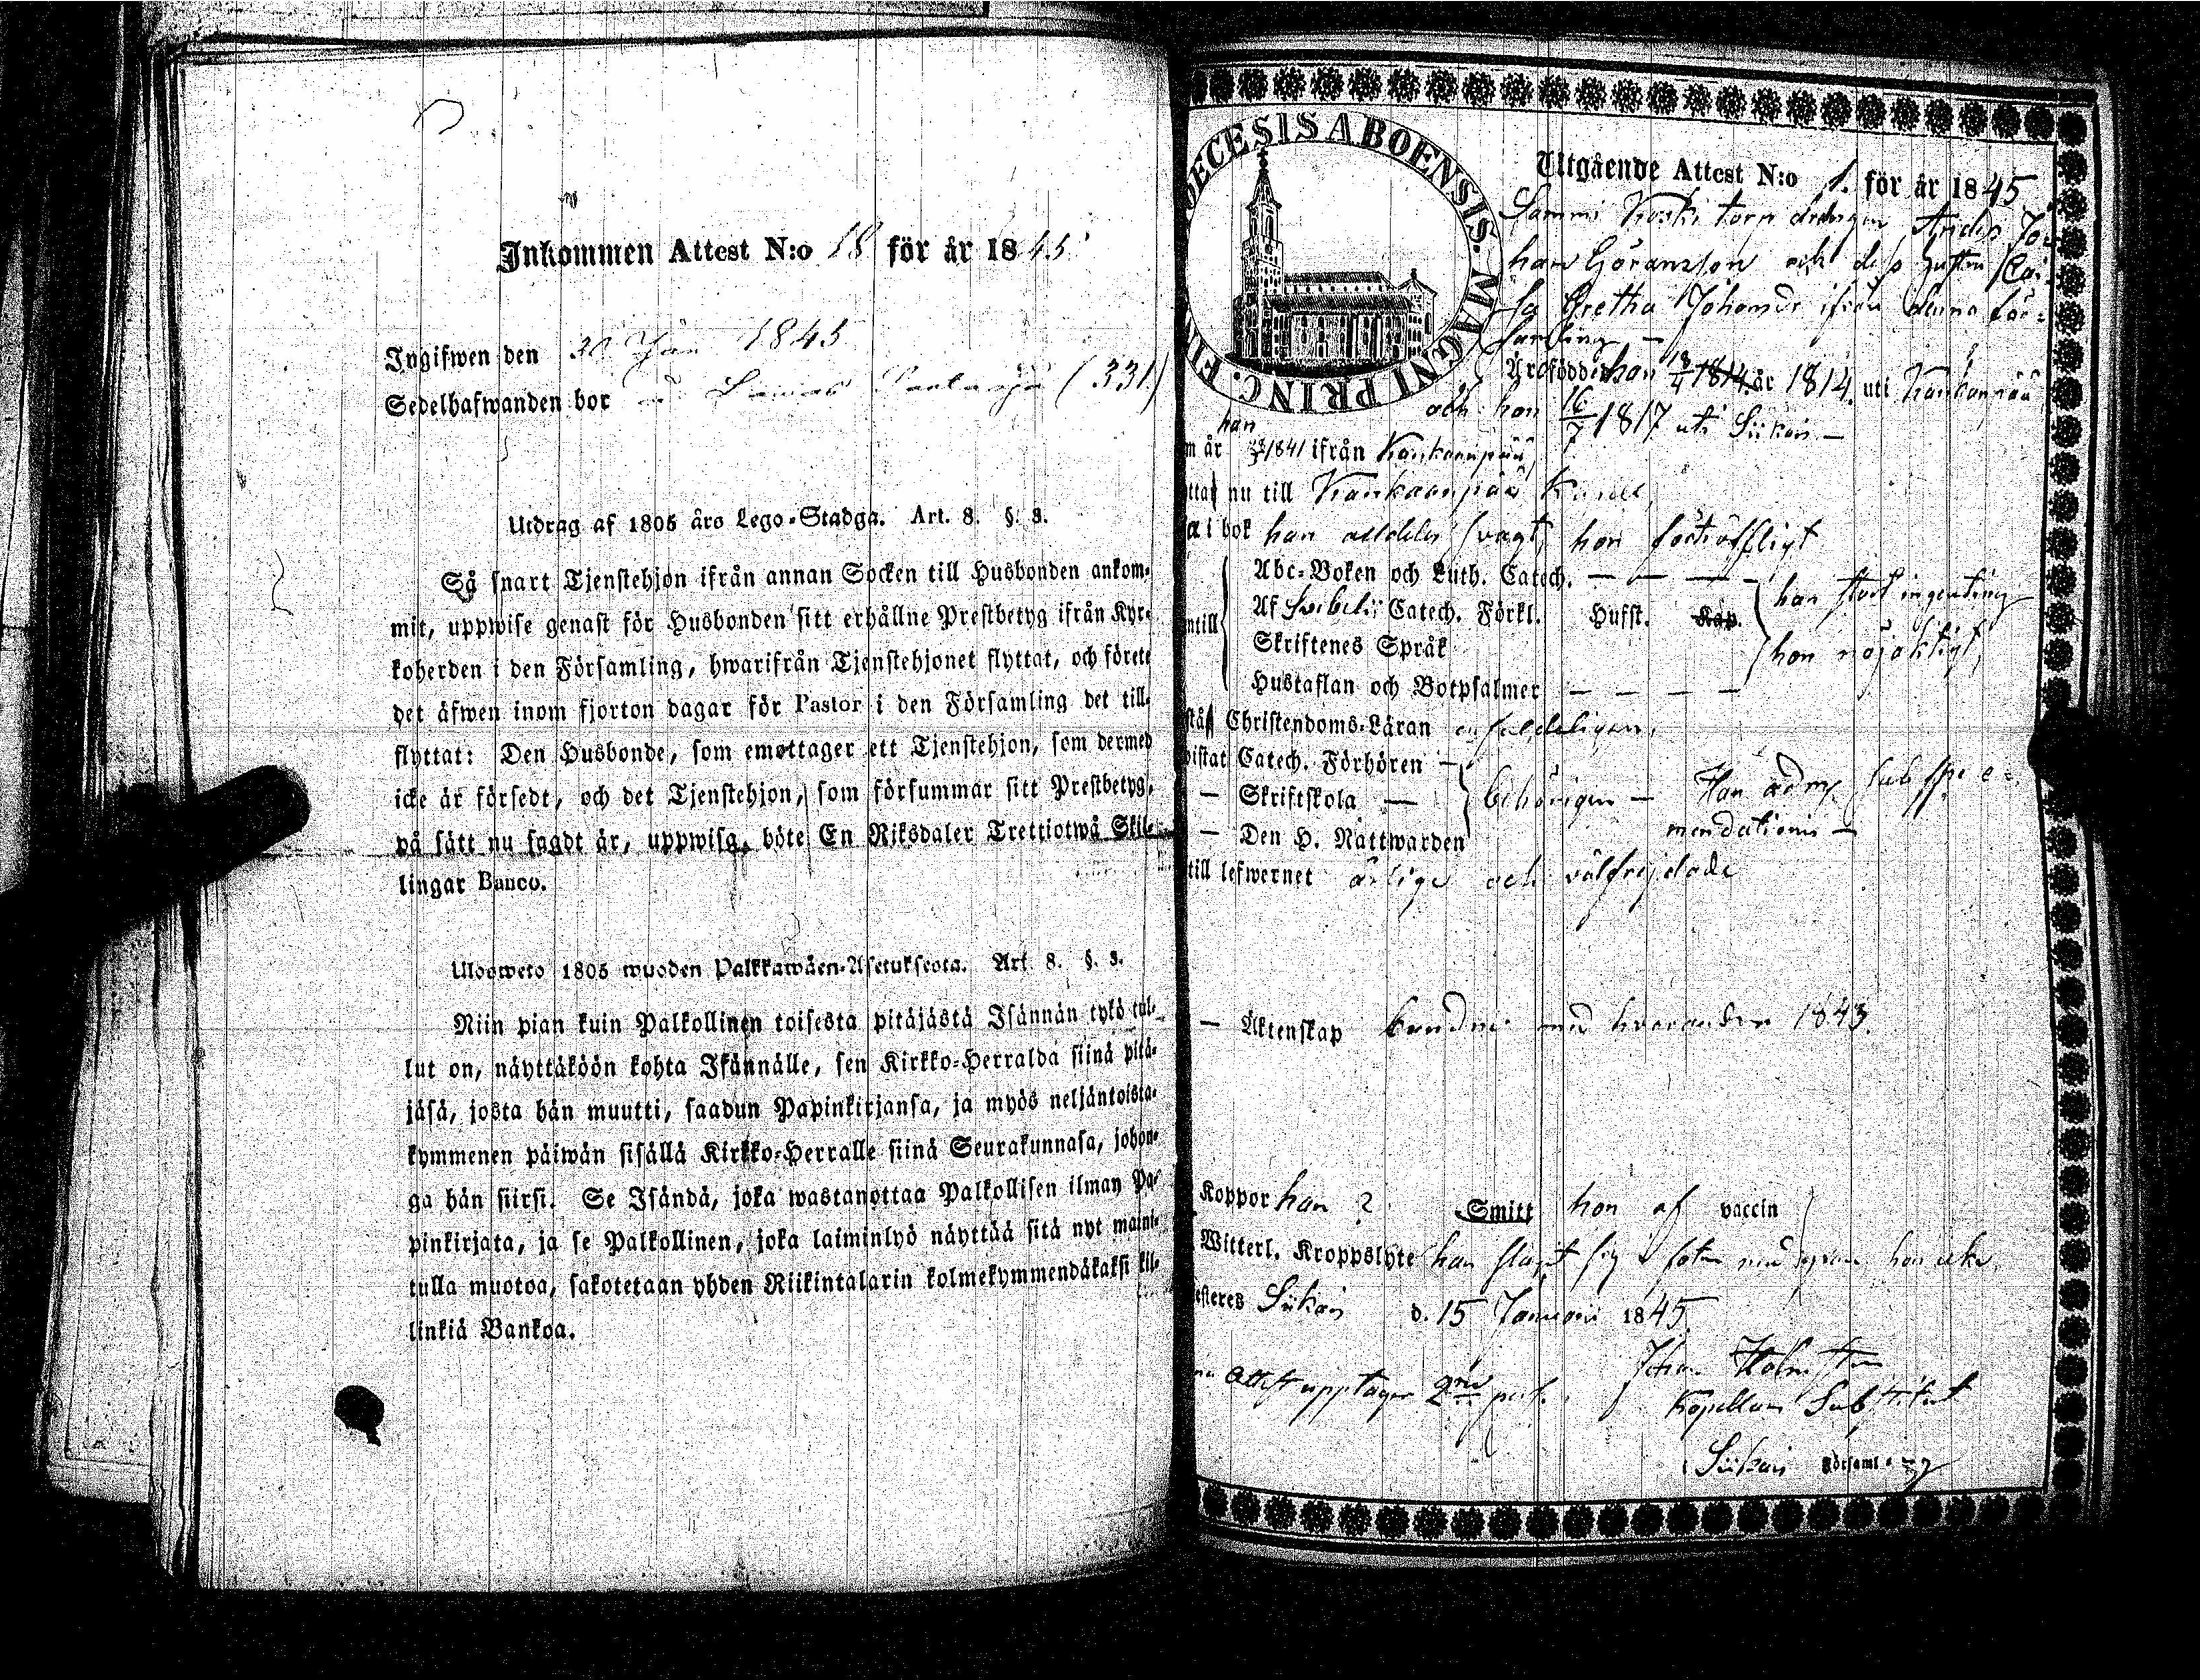 Inkommen Attest N:o 18 för år 1845
Ingifwen den 30 Jan 1845
Sedelhafwanden bor (331.)
Utdrag af 1805 års Lego-Stadga. Art. 8. §. 3.
Så snart Tjenstehjon ifrån annan Socken till Husbonden ankom-
mit, uppwise genast för Husbonden sitt erhållne Prestbetyg ifrån Kyr-
koherden i den Församling, hwarifrån Tjenstehjonet flyttat, och förete
det äfwen inom fjorton dagar för Pastor i den Församling det till-
flyttat: Den Husbonde, som emottager ett Tjenstehjon, som dermed
icke är försedt, och det Tjenstehjon, som försummar sitt Prestbetyg,
på sätt nu sagdt är, uppwisa, böte En Riksdaler Trettiotwå Skil-
lingar Banco.
Ulosweto 1805 wuoden Palkkawäen-Asetuksesta. Art. 8. §. 3.
Niin pian kuin Palkollinen toisesta pitäjästä Isännän tykö tul-
lut on, näyttäköön kohta Isännälle, sen Kirkko-Herralda siinä pitä-
jäsä, josta hän muutti, saadun Papinkirjansa, ja myös neljäntoista-
kymmenen päiwän sisällä Kirkko-Herralle siinä Seurakunnasa, johon-
ga hän siirsi. Se Isändä, joka wastanottaa Palkollisen ilman Pa-
pinkirjata, ja se Palkollinen, joka laiminlyö näyttää sitä nyt maini-
tulla muotoa, sakotetaan yhden Riikintalarin kolmekymmendäkaksi kil-
linkiä Bankoa.
DECESIS ABOENSIS. MAGNI PRINC. FIN
Utgående Attest N:o 1. för år 1845
Sammi Koski torp drängen Jo-
han Göransson och dess hustru Cai-
sa Gretha Johansdr ifrån denna för-
samling —
Äro födde han 13/4 1814 år 1814. uti Kankanpää
och hon 16/7 1817 uti Siikais —
han
m år 1841 ifrån Kankaanpää
ttat nu till Kankaanpää
a i bok han alldeles svagt, hon förträffligt
Abc-Boken och Luth. Catech. — — — —
ntill Af Svebelii Catech. Förkl. Husst. Kap. han stort ingenting
Skriftenes Språk hon nöjaktigt,
Hustaflan och Botpsalmer — — — —
stås Christendoms-Läran enfaldeligen,
wistat Catech. Förhören —
— Skriftskola — behörigen — Han adm. sub spe e-
— Den H. Nattwarden mendationis —
till lefwernet ärlige och välfrejdade
— Äktenskap med hvarandra 1843.
Koppor han ? Smitt hon af vaccin
Witterl. Kroppslyte han sig i foten med hon icke.
esteres Siikais d. 15 Januari 1845.
Attest upptager 2ne pers.
Johan
Kapellans Substitut
Siikais församling